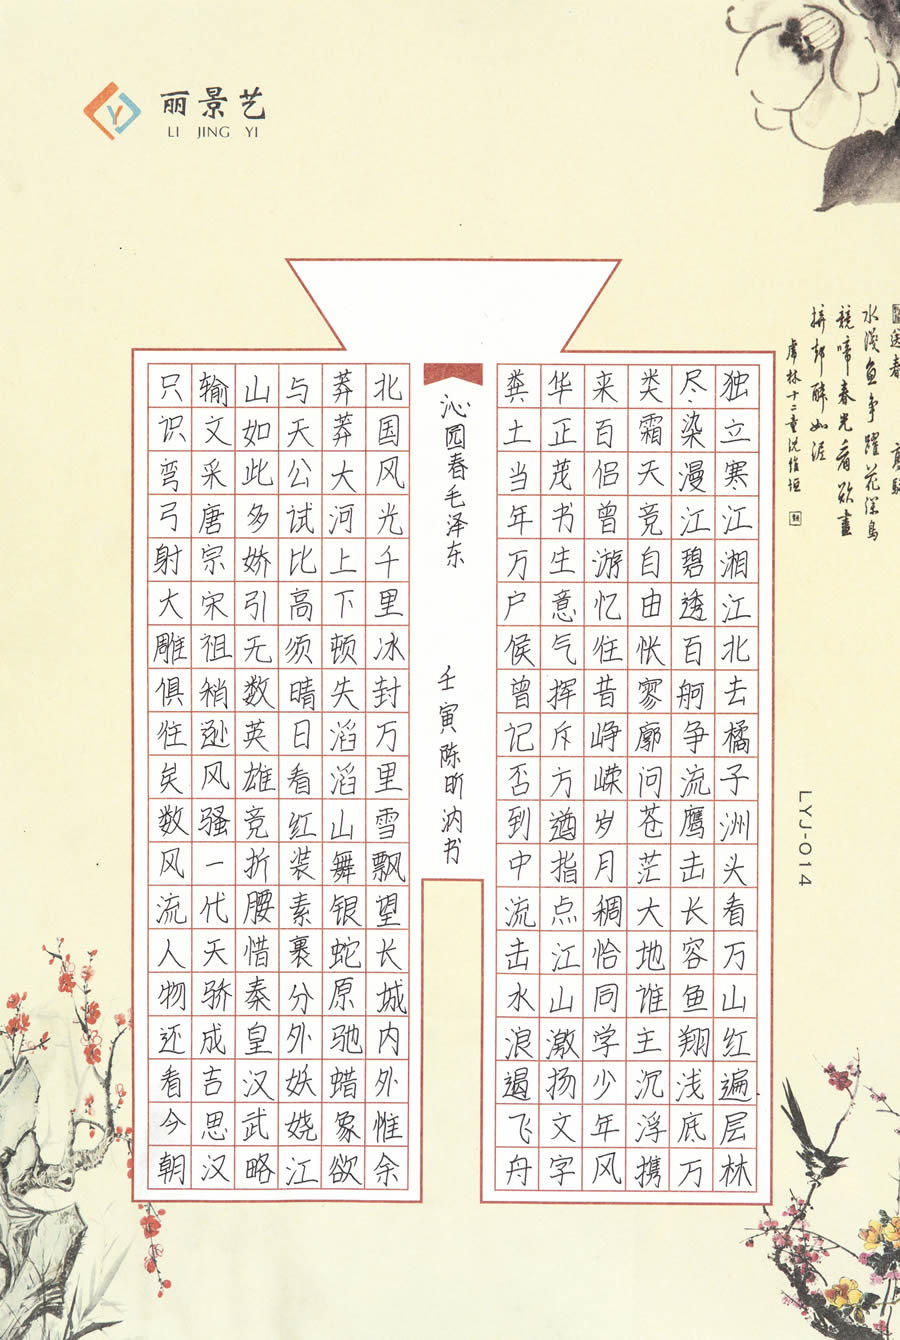 丽景艺
LI JING YI
送春
水浅鱼争跃花深鸟
競啼春光看欲盡
拚却醉如泥
LYJ-014
独立寒江湘江北去橘子洲头看万山红遍层林
尽染漫江碧透百舸争流鹰击长容鱼翔浅底万
类霜天竞自由怅寥廓问苍茫大地谁主沉浮携
来百侣曾游忆往昔峥嵘岁月稠恰同学少年风
华正茂书生意气挥斥方遒指点江山激扬文字
粪土当年万户侯曾记否到中流击水浪遏飞舟
沁园春毛泽东 壬寅陈昕汭书
北国风光千里冰封万里雪飘望长城内外惟余
莽莽大河上下顿失滔滔山舞银蛇原驰蜡象欲
与天公试比高须晴日看红装素裹分外妖娆江
山如此多娇引无数英雄竞折腰惜秦皇汉武略
输文采唐宗宋祖稍逊风骚一代天骄成吉思汉
只识弯弓射大雕俱往矣数风流人物还看今朝